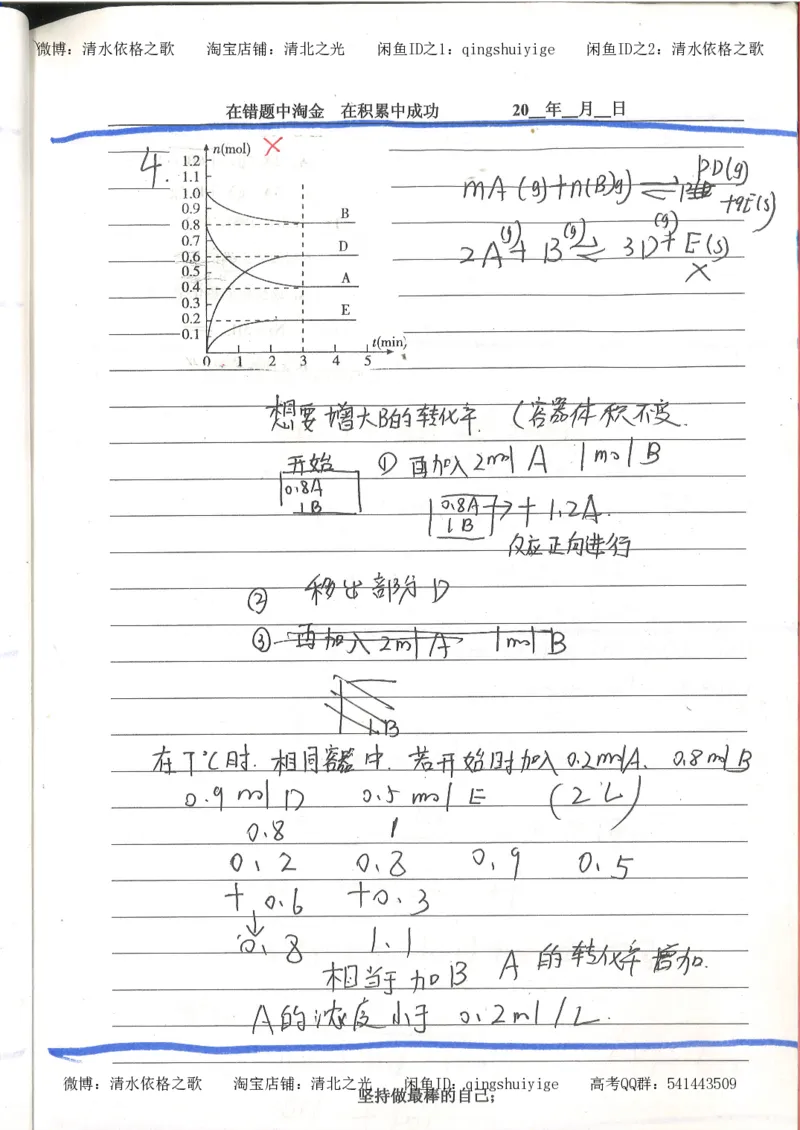 微博：清水依格之歌 淘宝店铺：清北之光 闲鱼ID之1：qingshuiyige 闲鱼ID之2：清水依格之歌
在错题中淘金 在积累中成功 20__年__月__日
4.
n(mol)
1.2
1.1
1.0
0.9
0.8
0.7
0.6
0.5
0.4
0.3
0.2
0.1
B
D
A
E
t(min)
0 1 2 3 4 5
mA(g)+n(B)g)⇌ pD(g)
+qE(s)
2A(g)+B(g)⇌3D(g)+E(s)
×
想要增大B的转化率.（容器体积不变.
开始 ① 再加入2mol A 1mol B
0.8A
1B
0.8A → + 1.2A.
1B
反应正向进行
② 移出部分D
③ 再加入2mol A 1mol B
1B
在T℃时.相同容器中.若开始时加入0.2molA. 0.8molB
0.9 mol D 0.5 mol E (2L)
0.8 1
0.2 0.8 0.9 0.5
+0.6 +0.3
↓
0.8 1.1
相当于加B A的转化率增加.
A的浓度小于 0.2ml/L.
微博：清水依格之歌 淘宝店铺：清北之光 闲鱼ID：qingshuiyige 高考QQ群：541443509
坚持做最棒的自己；